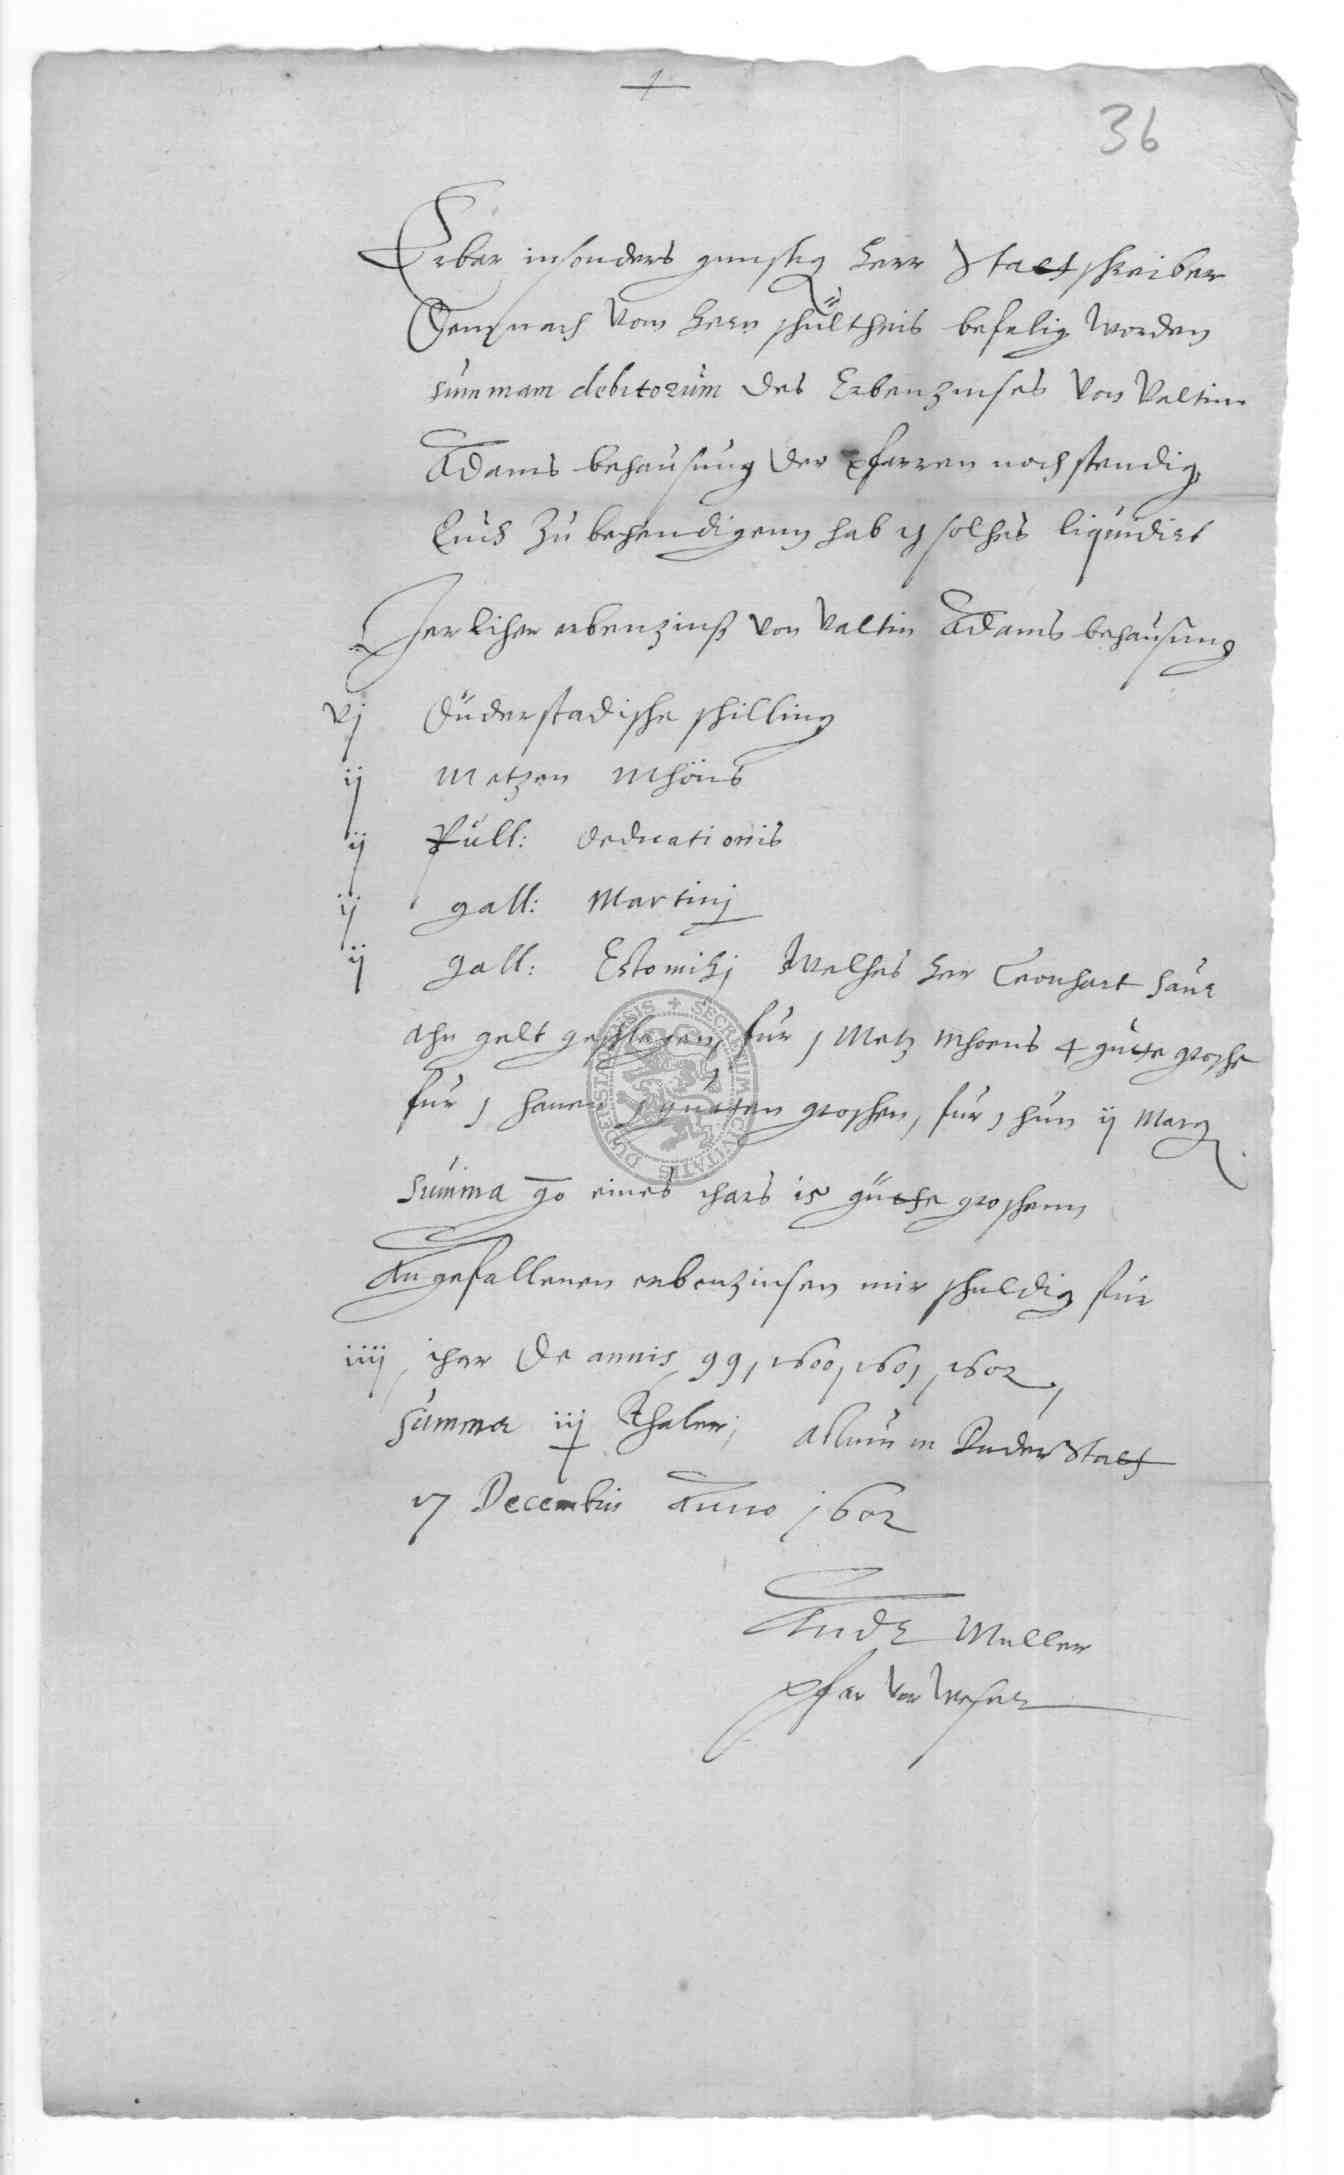 36
Erbar insonders gunstig Herr Statschreiber
Demnach vom hern schültheis befelig worden
summam debitorum des Erbenzinses von Valtin
Adams behausung der pfarren nochstendig
Euch zu behendigenn hab ich solches liquidirt
Jerlicher erbenzinß von Valtin Adams behausung
vj Düderstadische schilling
ij Metzen Mhöns
ij Pull: dedicationis
ij gall: Martinj
ij gall: Estomihj Welches her Leonhart Saur
ahn gelt geschlagen, für j Metz Mhoens 4 gute grosche
für j hanen j guten groschen, für j hun ij Marg
Summa go eines ihars 15 güthe groschenn
An gefallenen erbenzinsen mir schuldig für
iiij ihar De annis 99, 1600, 1601, 1602,
Summa iij Thaler, in Duderstatt
17 Decembris Anno 1602
Andr Muller
pfar
SECRETUM CIVITATIS DUDERSTADENSIS